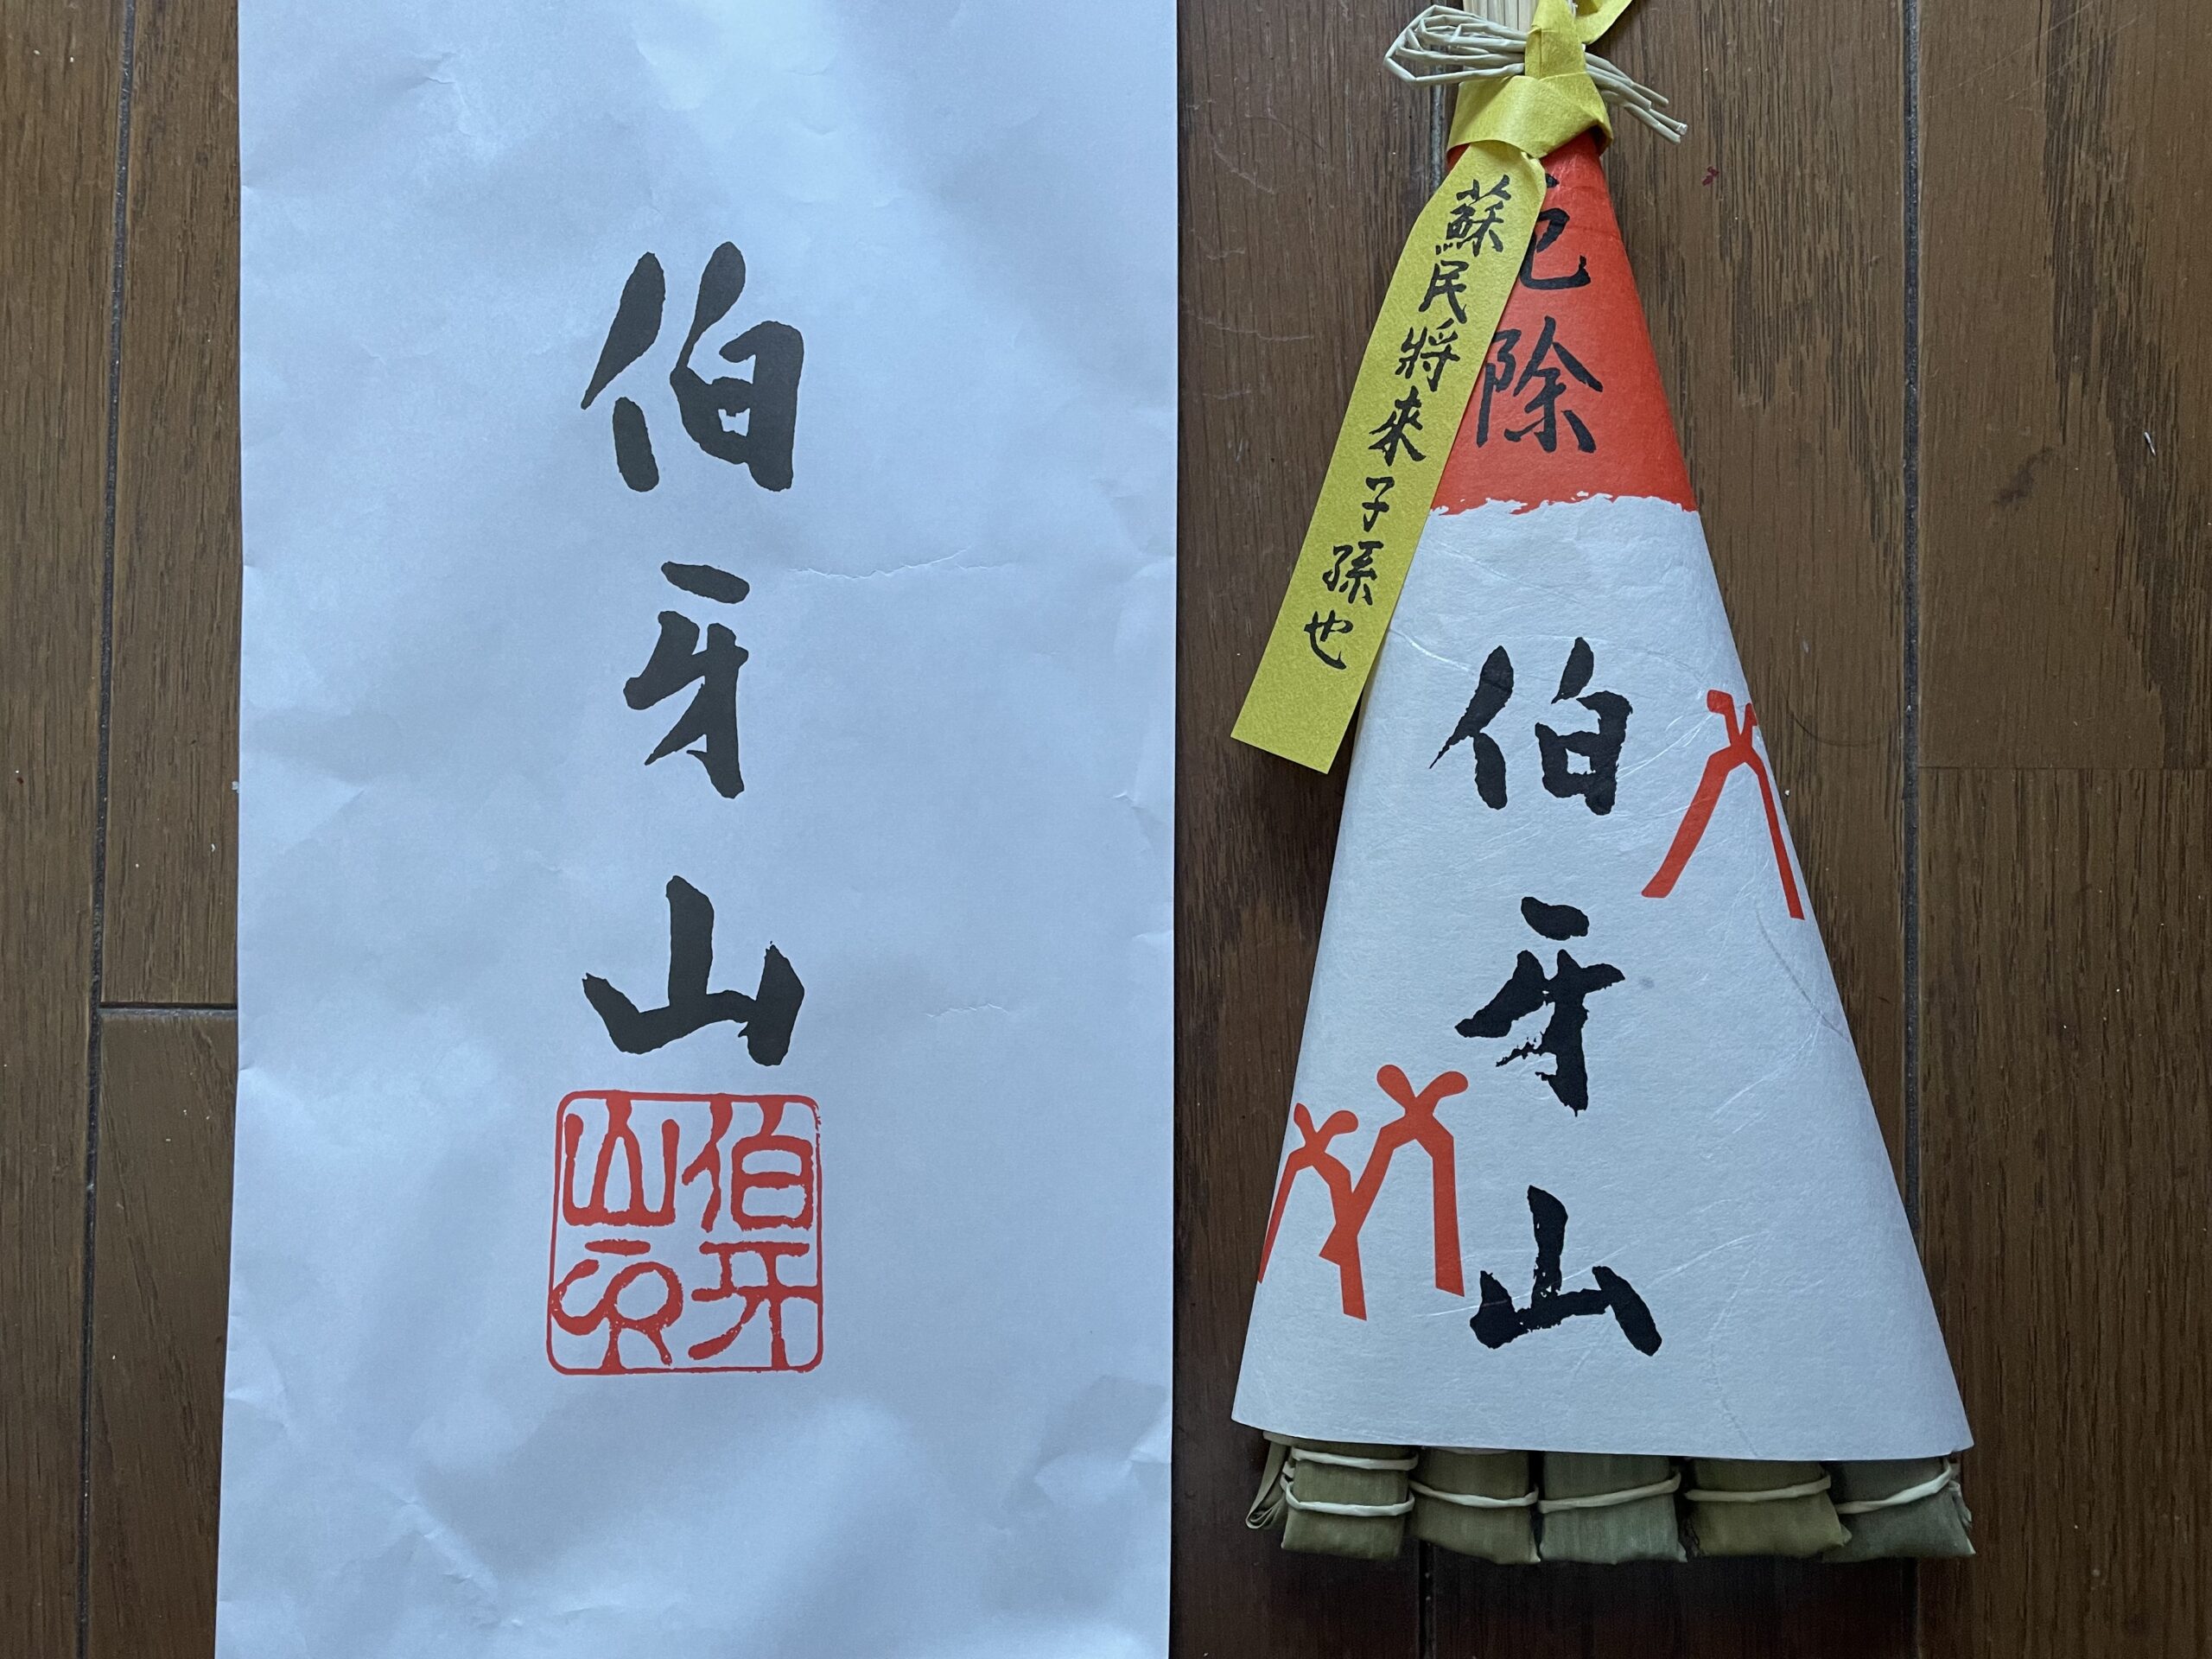 伯牙山
伯牙山印
蘇民将來子孫也
厄除
伯牙山